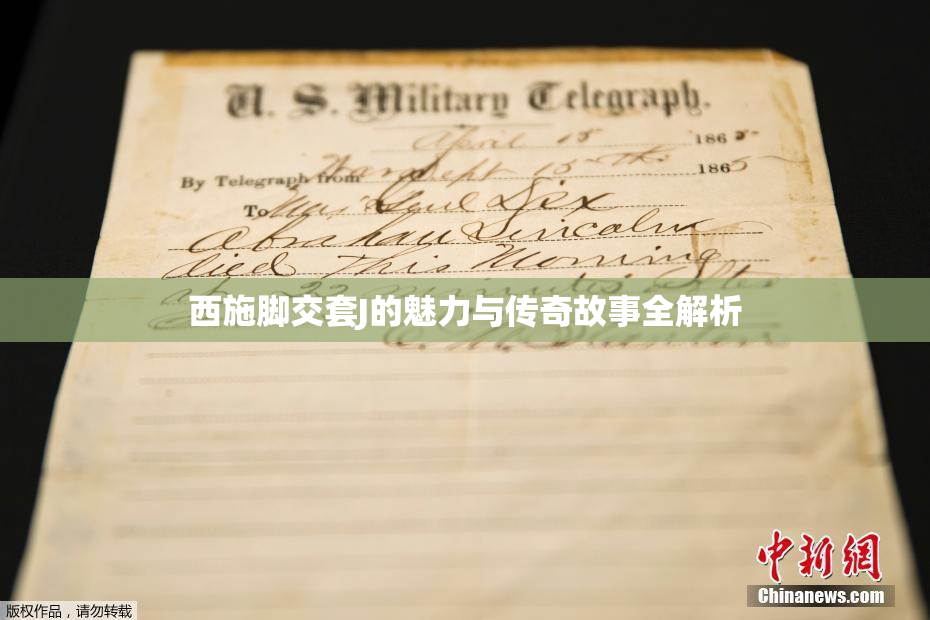 U. S. Military Telegraph.
April 15 1865
By Telegraph from War Dept 15th 1865
To Maj Genl Dix
Abraham Lincoln
died This Morning
at 22 minutes after
西施脚交套J的魅力与传奇故事全解析
E. M. Stanton
中新網
Chinanews.com
版权作品，请勿转载